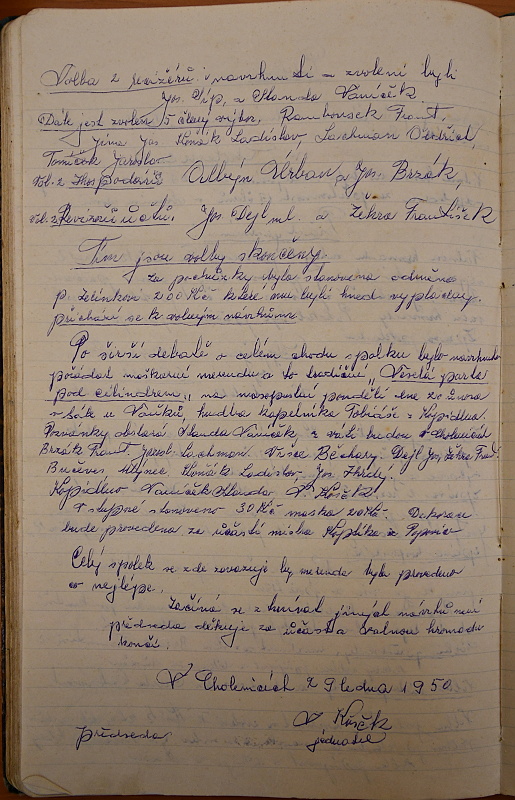 Volba 2 revizérů: navrhnuti a zvoleni byli
Jos. Šíp, a Standa Vaníček
Dále jest zvolen 5 členný výbor. Rambousek Frant.
Jíma Jos Koňák Ladislav, Lachman Oldřich,
Tomíček Jaroslav
Vol. 2 Hospodářů Albín Urban a Jos. Brzák,
Vol. 2 Revizorů účtů. Jos Dejl ml. a Žekra František
Tím jsou volby skončeny.
Za pochůzky byla stanovena odměna
p. 200 Kčs které mu byli hned vyplaceny.
přechází se k volným návrhům.
Po širší debatě o celém chodu spolku bylo navrhnuto
pořádat maškarní merendu a to tradiční „Veselá partie
pod cilindrem„ na masopustní pondělí dne 20 února
v sále u Vaníčků, hudba kapelníka z Kopidlna.
Pozvánky obstará Standa Vaníček, z váti budou v Cholenicích
Brzák Frant, Jarosl. Lachman. Běchary, Dejl Jos, Žekra Frant
Bučoves, Mlýnec Koňák Ladislav, Jos.
Kopidlno Vaníček Standa V Košek!
Vstupné stanoveno 30 Kčs maska 20 Kčs. Dekorace
bude provedena za účasti mistra Koptíka z Popovic
Celý spolek se zde zavazuje by merenda byla provedena
co nejlépe.
jiných návrhů není
předseda děkuje za účast a valnou hromadu
končí.
V Cholenicích 29 ledna 1950
V Košek
předseda jednatel